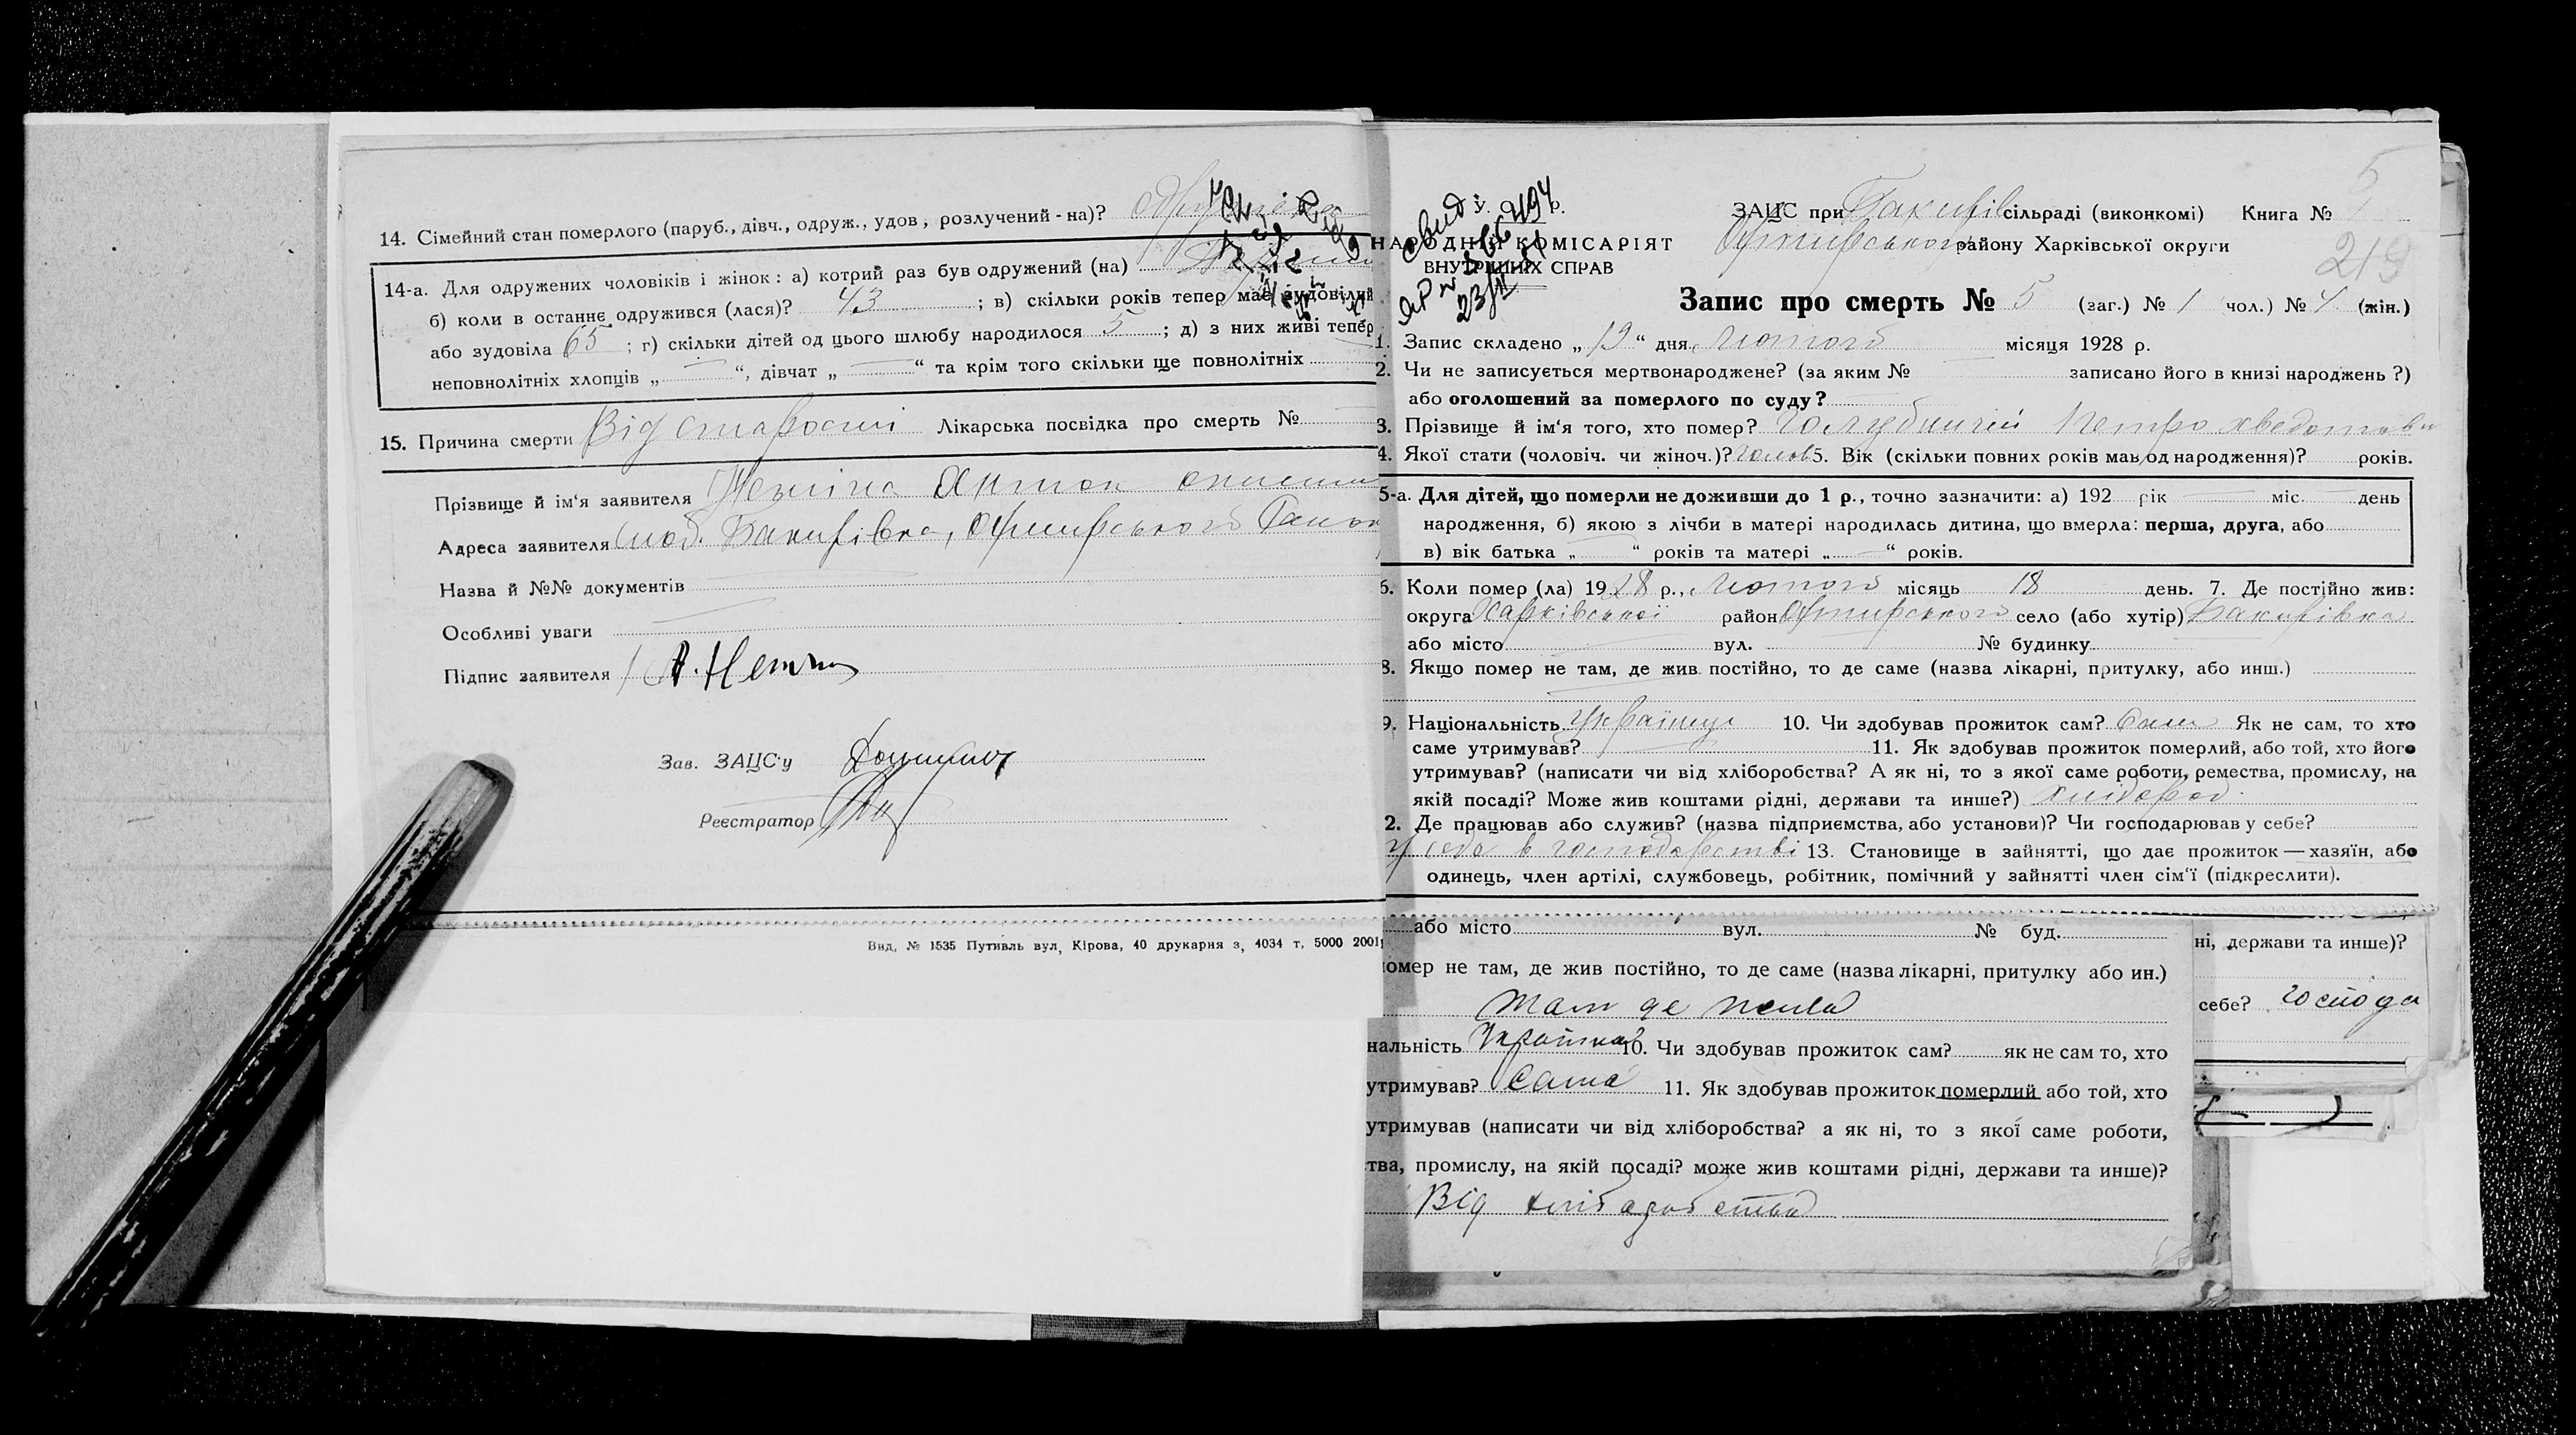 14. Сімейний стан померлого (паруб., дівч., одруж., удов, розлучений - на)?
14-а. Для одружених чоловіків і жінок: а) котрий раз був одружений (на)
б) коли в останнє одружився (лася)? 43 ; в) скільки років тепер має зудовілий
або зудовіла 65 ; г) скільки дітей од цього шлюбу народилося 5 ; д) з них живі тепер
неповнолітніх хлопців „ — “, дівчат „ — “ та крім того скільки ще повнолітніх
15. Причина смерти Від старости Лікарська посвідка про смерть №
Прізвище й ім‘я заявителя Антон
Адреса заявителя Бакирівка, Охтирського
Назва й №№ документів
Особливі уваги
Підпис заявителя
Зав. ЗАЦС‘у
Реєстратор
Вид, № 1535 Путивль вул, Кірова, 40 друкарня з, 4034 т, 5000 2001
5
свид 23/II
У. С. Р. Р.
НАРОДНІЙ КОМІСАРІЯТ
ВНУТРІШНІХ СПРАВ
ЗАЦС при Бакирів сільраді (виконкомі) Книга №
Охтирського району Харківської округи
219
Запис про смерть № 5 (заг.) № 1 (чол.) № 4 (жін.)
1. Запис складено „ 19 “ дня Лютого місяця 1928 р.
2. Чи не записується мертвонароджене? (за яким № записано його в книзі народжень ?)
або оголошений за померлого по суду?
3. Прізвище й ім‘я того, хто помер? Голубничій Петро Хведотови
4. Якої стати (чоловіч. чи жіноч.)? Чолов 5. Вік (скільки повних років мав од народження)? років.
5-а. Для дітей, що померли не доживши до 1 р., точно зазначити: а) 192 рік — міс. — день
народження, б) якою з лічби в матері народилась дитина, що вмерла: перша, друга, або
в) вік батька „ — “ років та матері „ — “ років.
6. Коли помер (ла) 1928 р., Лютого місяць 18 день. 7. Де постійно жив:
округа Харківської район Охтирського село (або хутір) Бакирівка
або місто вул. № будинку
8. Якщо помер не там, де жив постійно, то де саме (назва лікарні, притулку, або инш.)
9. Національність Українець 10. Чи здобував прожиток сам? Сам Як не сам, то хто
саме утримував? 11. Як здобував прожиток померлий, або той, хто його
утримував? (написати чи від хліборобства? А як ні, то з якої саме роботи, ремества, промислу, на
якій посаді? Може жив коштами рідні, держави та инше?) Хлібороб
2. Де працював або служив? (назва підприємства, або установи)? Чи господарював у себе?
У себе в господарстві 13. Становище в зайнятті, що дає прожиток — хазяїн, або
одинець, член артілі, службовець, робітник, помічний у зайнятті член сім‘ї (підкреслити).
або місто вул. № буд.
омер не там, де жив постійно, то де саме (назва лікарні, притулку або ин.)
там де жила
нальність Українка 10. Чи здобував прожиток сам? як не сам то, хто
утримував? Сама 11. Як здобував прожиток померлий або той, хто
утримував (написати чи від хліборобства? а як ні, то з якої саме роботи,
тва, промислу, на якій посаді? може жив коштами рідні, держави та инше)?
Від хліборобства
ні, держави та инше)?
себе? господа